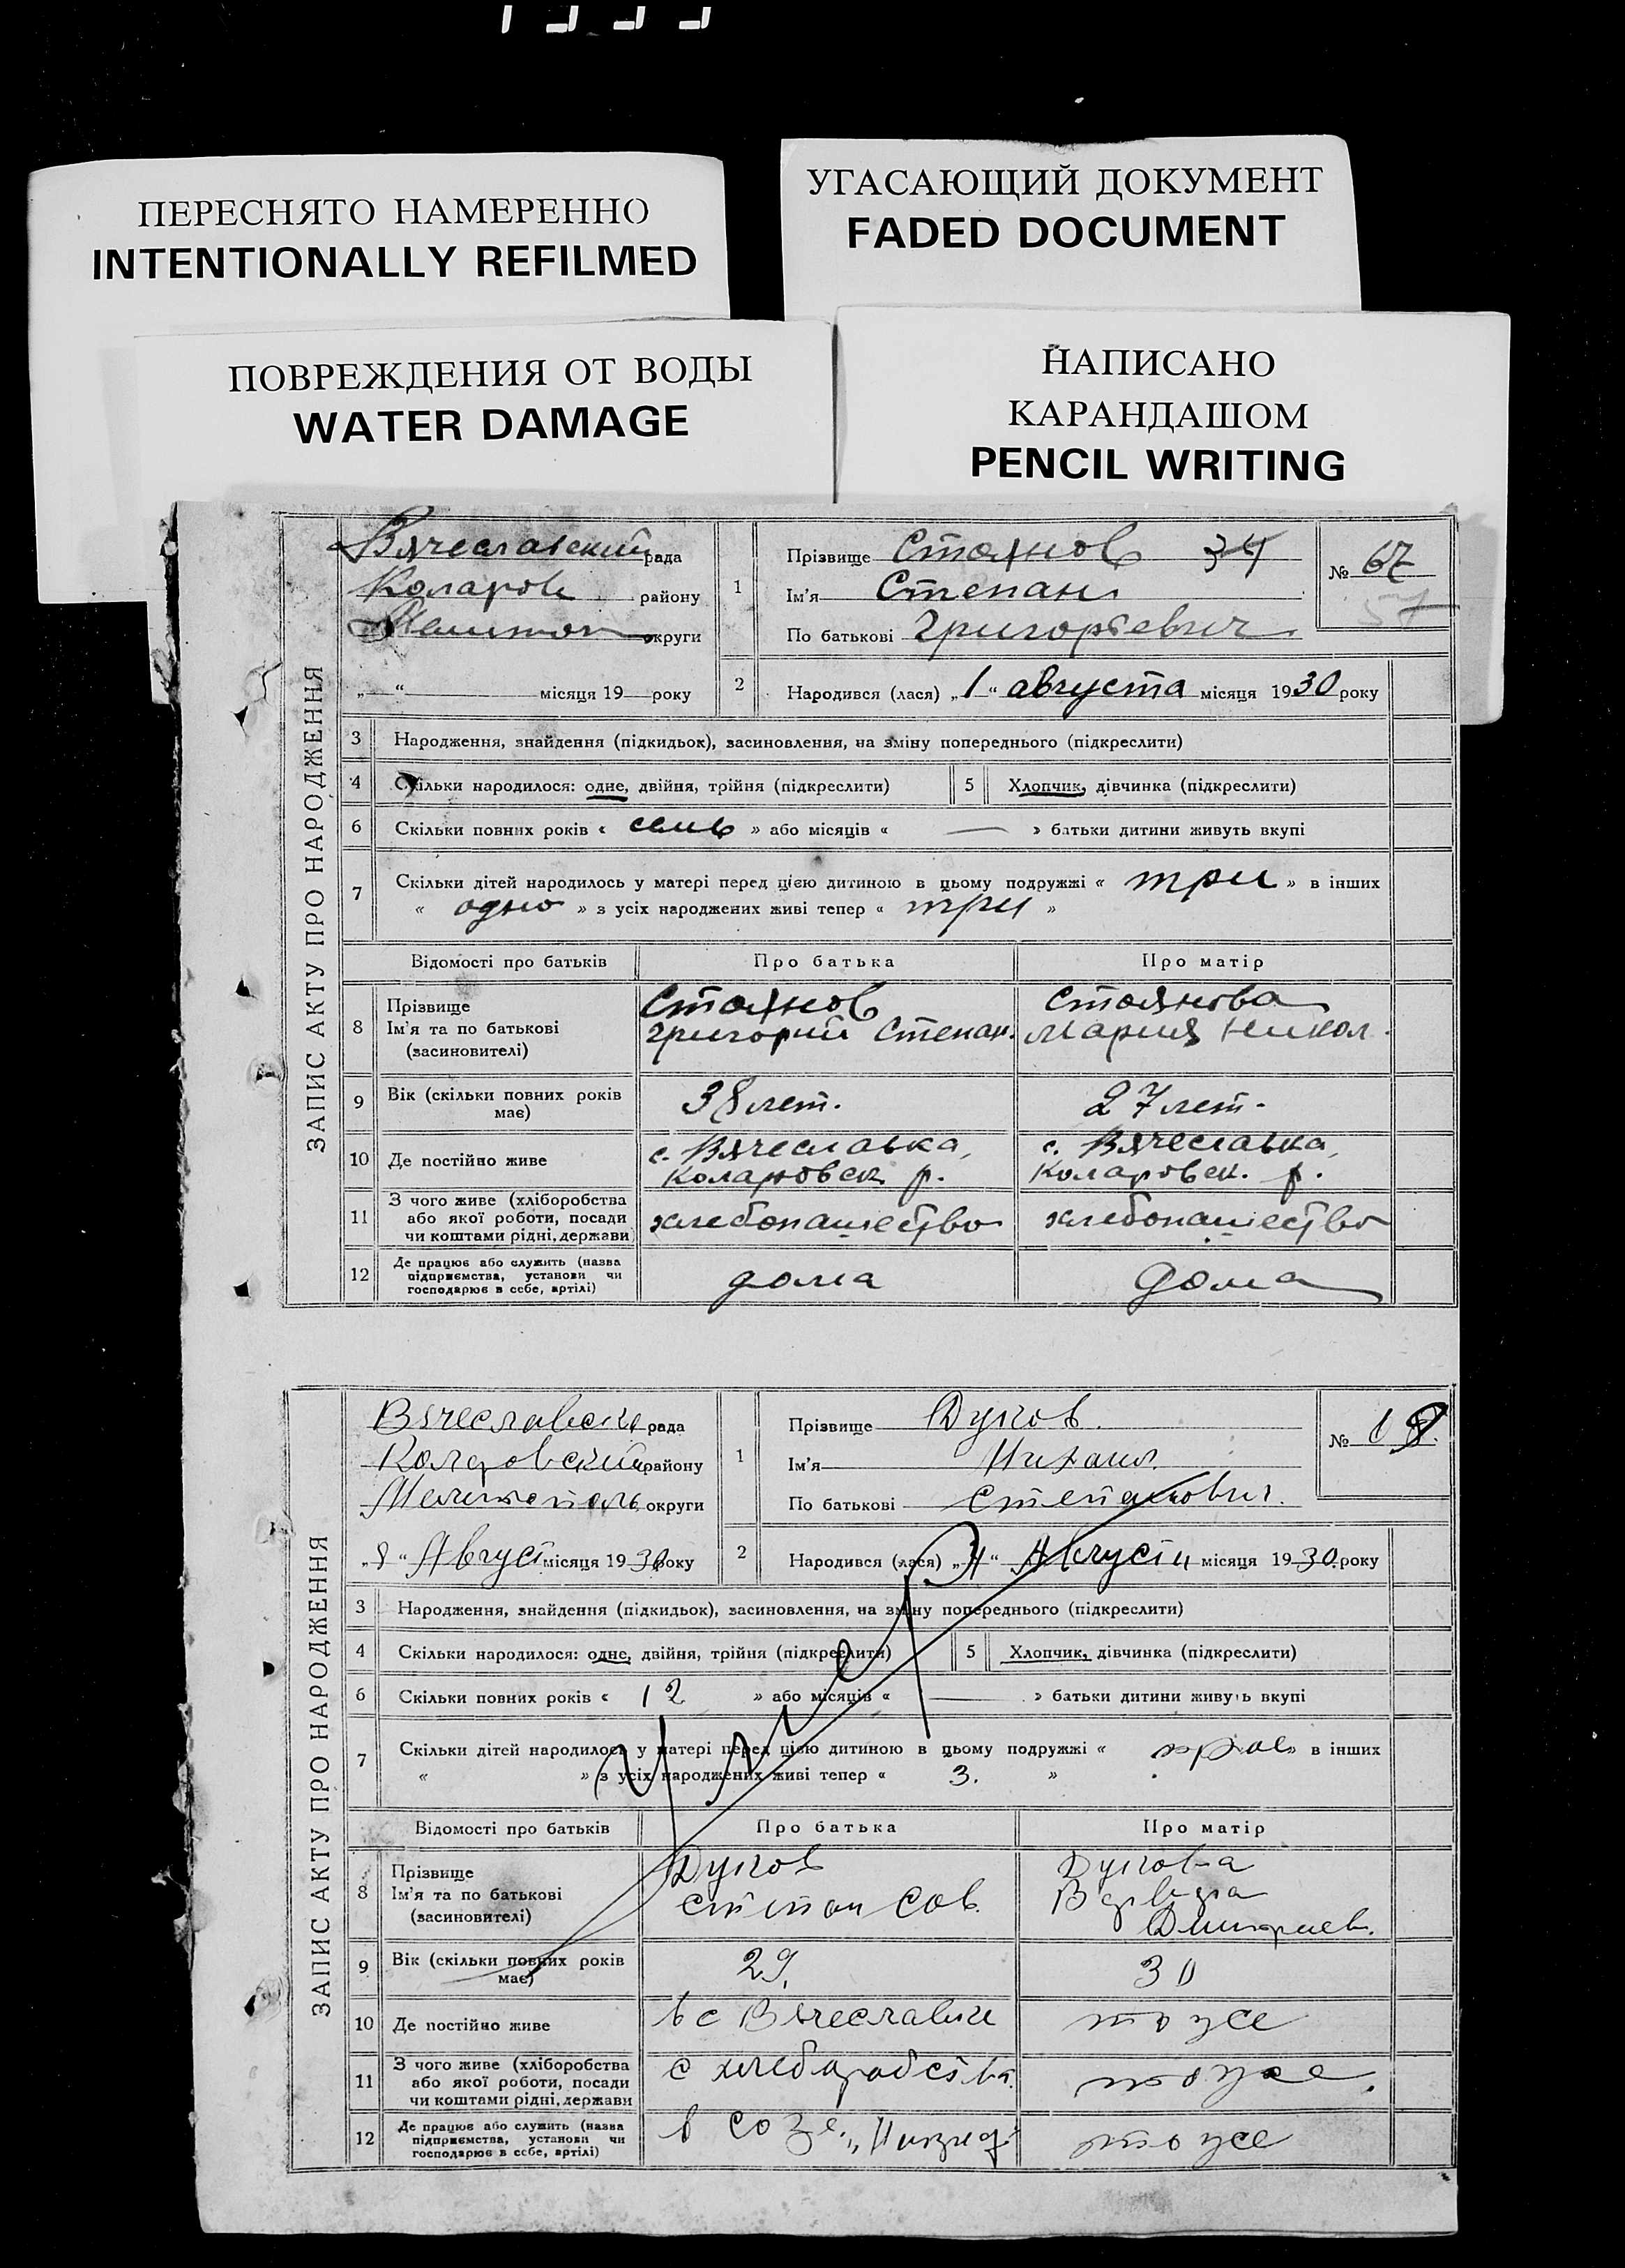 ПЕРЕСНЯТО НАМЕРЕННО
INTENTIONALLY REFILMED
УГАСАЮЩИЙ ДОКУМЕНТ
FADED DOCUMENT
ПОВРЕЖДЕНИЯ ОТ ВОДЫ
WATER DAMAGE
НАПИСАНО
КАРАНДАШОМ
PENCIL WRITING
ЗАПИС АКТУ ПРО НАРОДЖЕННЯ
Вячеславский рада
Коларов району
Мелитоп округи
„ “ місяця 19 року
1 Прізвище Стоянов 34
Ім'я Степан
По батькові Григорьевич
№ 67
57
2 Народився (лася) „1“ августа місяця 1930 року
3 Народження, знайдення (підкидьок), засиновлення, на зміну попереднього (підкреслити)
4 Скільки народилося: одне, двійня, трійня (підкреслити) 5 Хлопчик, дівчинка (підкреслити)
6 Скільки повних років « семь » або місяців « — » батьки дитини живуть вкупі
7 Скільки дітей народилось у матері перед цією дитиною в цьому подружжі « три » в інших
« одно » з усіх народжених живі тепер « три »
Відомості про батьків Про батька Про матір
8 Прізвище Стоянов Стоянова
Ім'я та по батькові Григорий Степан. Мария Никол.
(засиновителі)
9 Вік (скільки повних років має) 38 лет. 27 лет.
10 Де постійно живе с. Вячеславка, Коларовск р. с. Вячеславка, Коларовск. р.
11 З чого живе (хліборобства або якої роботи, посади чи коштами рідні, держави) хлебопашество хлебопашество
12 Де працює або служить (назва підприємства, установи чи господарює в себе, артілі) дома дома
ЗАПИС АКТУ ПРО НАРОДЖЕННЯ
Вячеславский рада
Коларовский району
Мелитополь округи
„8“ Август місяця 1930 року
1 Прізвище Дулов.
Ім'я Михаил.
По батькові Степанович.
№ 18.
2 Народився (лася) „4“ Августа місяця 1930 року
3 Народження, знайдення (підкидьок), засиновлення, на зміну попереднього (підкреслити)
4 Скільки народилося: одне, двійня, трійня (підкреслити) 5 Хлопчик, дівчинка (підкреслити)
6 Скільки повних років « 12 » або місяців « — » батьки дитини живуть вкупі
умер
7 Скільки дітей народилось у матері перед цією дитиною в цьому подружжі « трое » в інших
« » з усіх народжених живі тепер « 3. »
Відомості про батьків Про батька Про матір
8 Прізвище Дулов Дулова
Ім'я та по батькові Степан Сав. Варвара
(засиновителі) Дмитриев.
9 Вік (скільки повних років має) 29. 30
10 Де постійно живе в с Вячеславке тоже
11 З чого живе (хліборобства або якої роботи, посади чи коштами рідні, держави с хлеборобства. тоже.
12 Де працює або служить (назва підприємства, установи чи господарює в себе, артілі) в созе. тоже